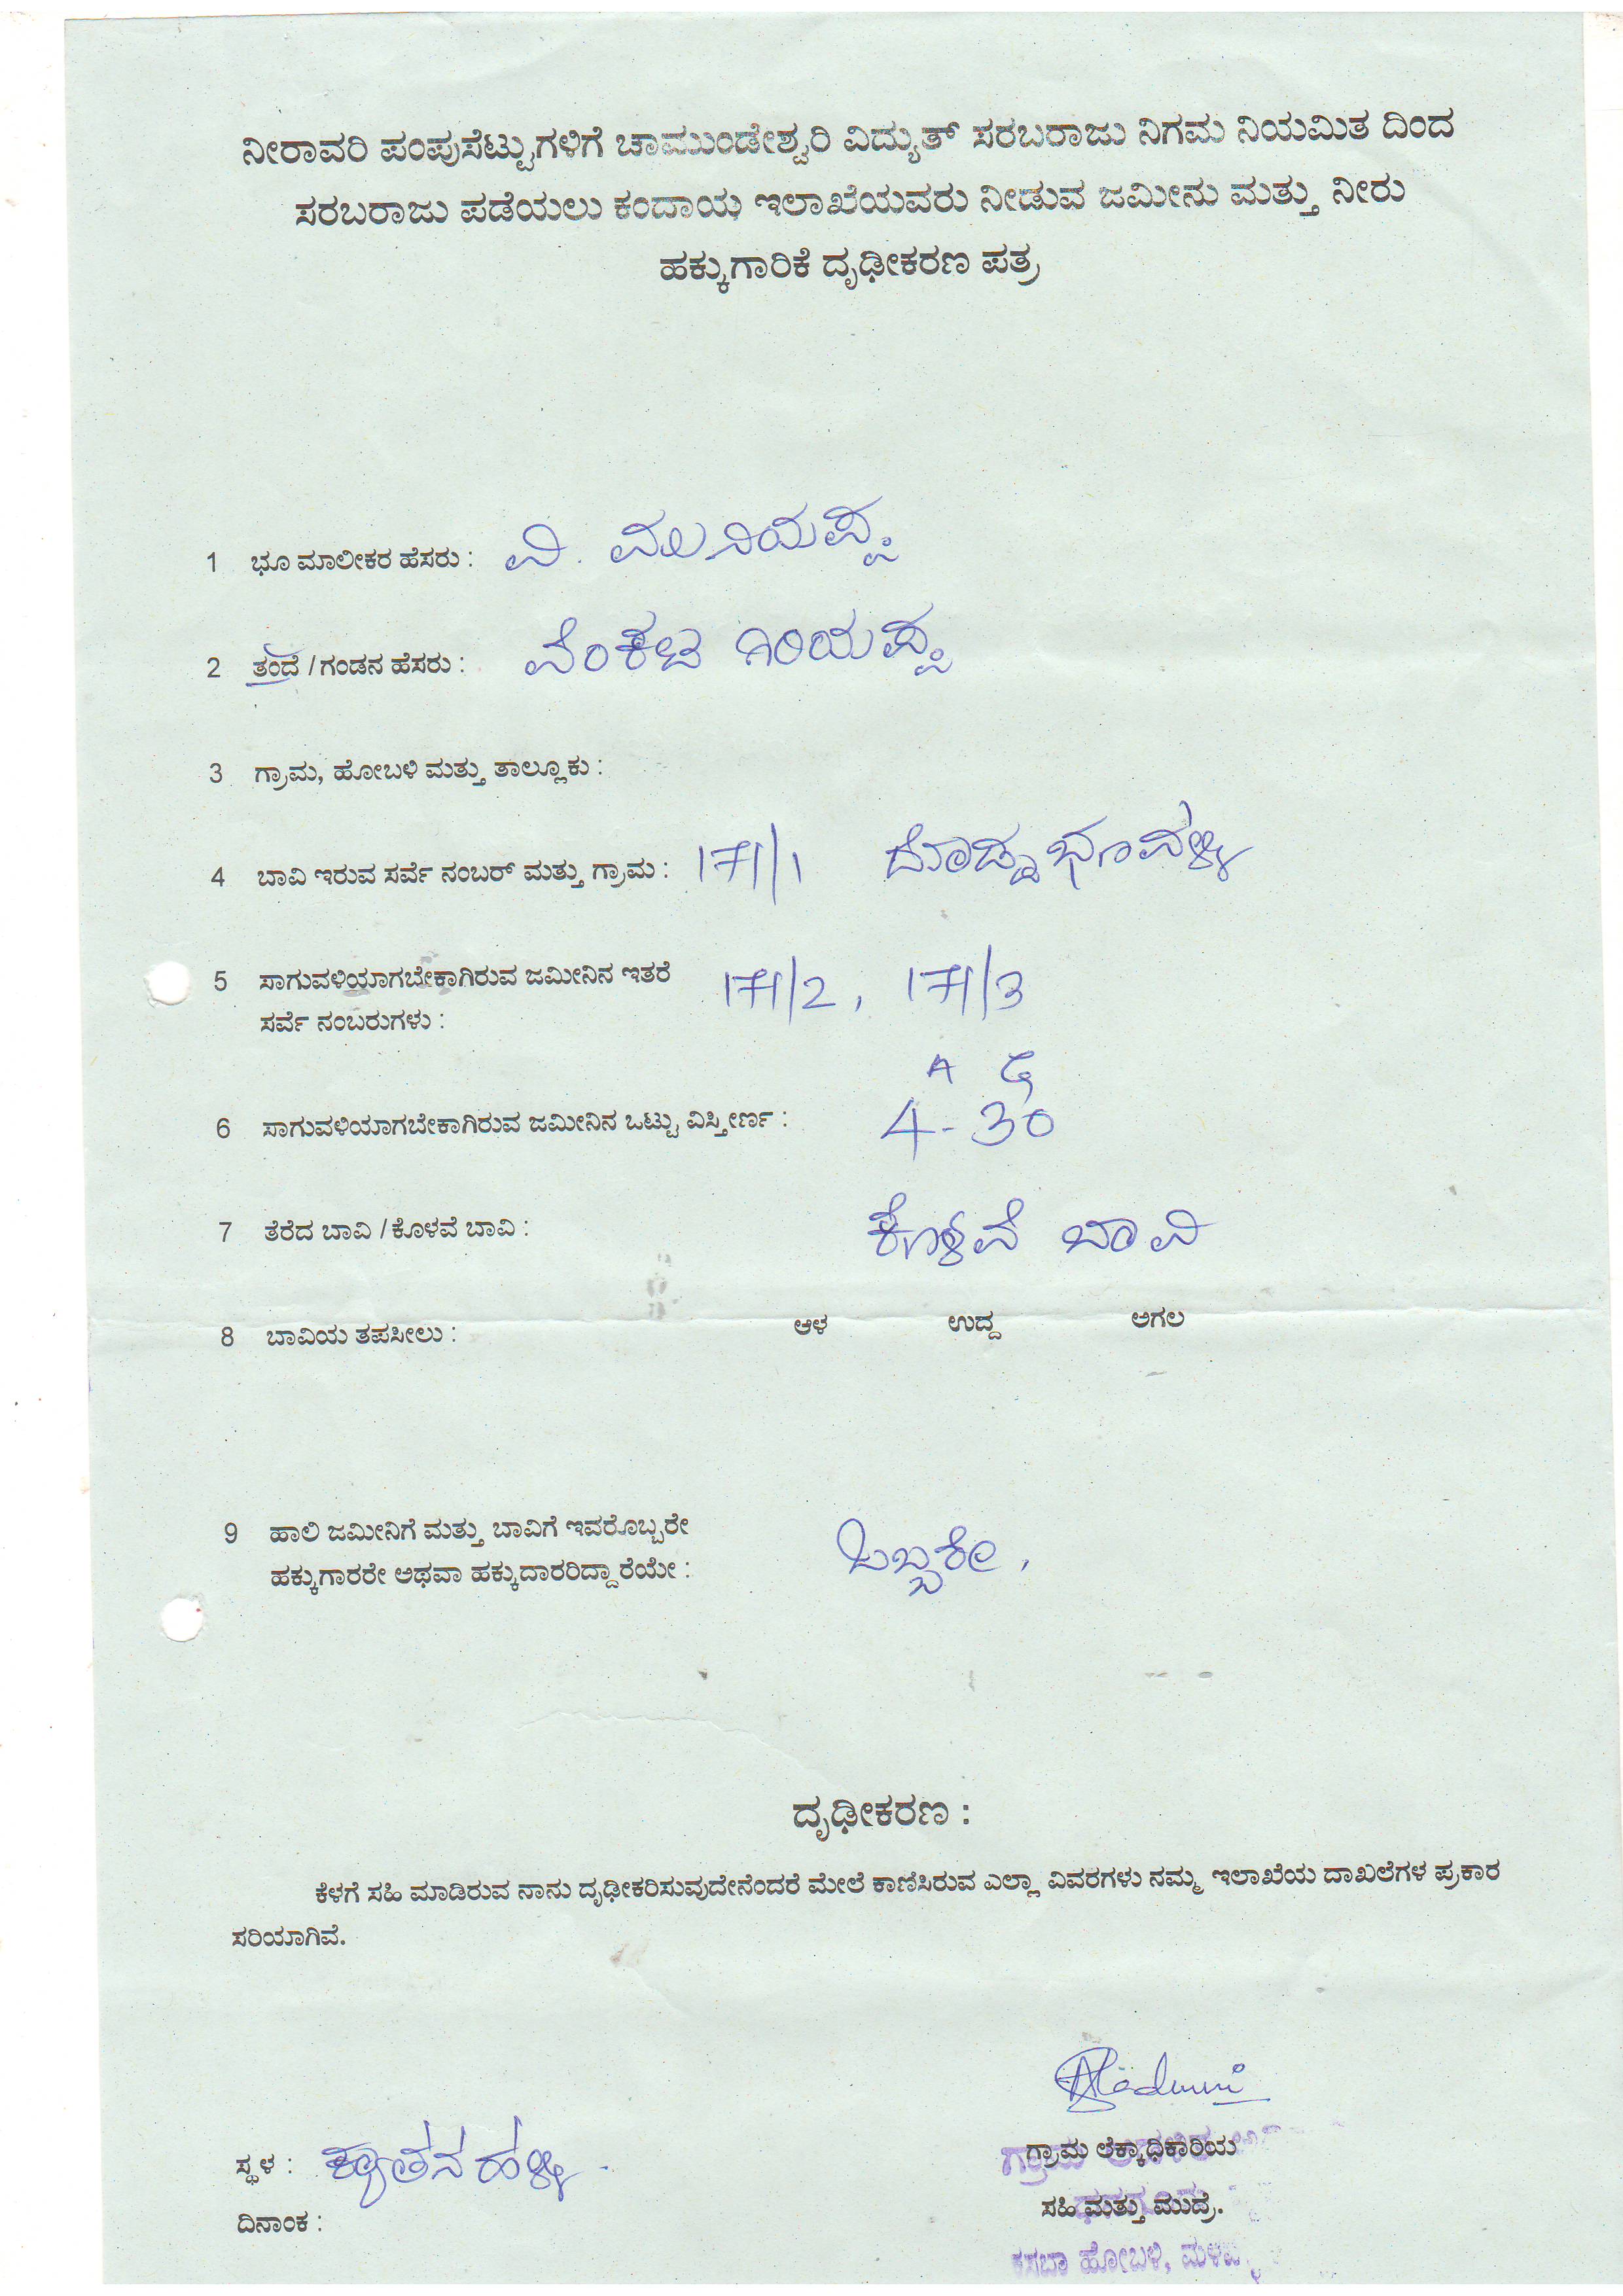 ನೀರಾವರಿ ಪಂಪುಸೆಟ್ಟುಗಳಿಗೆ ಚಾಮುಂಡೇಶ್ವರಿ ವಿದ್ಯುತ್ ಸರಬರಾಜು ನಿಗಮ ನಿಯಮಿತ ದಿಂದ
ಸರಬರಾಜು ಪಡೆಯಲು ಕಂದಾಯ ಇಲಾಖೆಯವರು ನೀಡುವ ಜಮೀನು ಮತ್ತು ನೀರು
ಹಕ್ಕುಗಾರಿಕೆ ದೃಢೀಕರಣ ಪತ್ರ
1 ಭೂ ಮಾಲೀಕರ ಹೆಸರು : ವಿ. ಮುನಿಯಪ್ಪ
2 ತಂದೆ / ಗಂಡನ ಹೆಸರು : ವೆಂಕಟ ಗಿರಿಯಪ್ಪ
3 ಗ್ರಾಮ, ಹೋಬಳಿ ಮತ್ತು ತಾಲ್ಲೂಕು :
4 ಬಾವಿ ಇರುವ ಸರ್ವೆ ನಂಬರ್ ಮತ್ತು ಗ್ರಾಮ : 171/1 ದೊಡ್ಡಭೂವಳ್ಳಿ
5 ಸಾಗುವಳಿಯಾಗಬೇಕಾಗಿರುವ ಜಮೀನಿನ ಇತರೆ 171/2, 171/3
ಸರ್ವೆ ನಂಬರುಗಳು :
A G
6 ಸಾಗುವಳಿಯಾಗಬೇಕಾಗಿರುವ ಜಮೀನಿನ ಒಟ್ಟು ವಿಸ್ತೀರ್ಣ : 4-30
7 ತೆರೆದ ಬಾವಿ / ಕೊಳವೆ ಬಾವಿ : ಕೊಳವೆ ಬಾವಿ
8 ಬಾವಿಯ ತಪಸೀಲು : ಆಳ ಉದ್ದ ಅಗಲ
9 ಹಾಲಿ ಜಮೀನಿಗೆ ಮತ್ತು ಬಾವಿಗೆ ಇವರೊಬ್ಬರೇ
ಹಕ್ಕುಗಾರರೇ ಅಥವಾ ಹಕ್ಕುದಾರರಿದ್ದಾರೆಯೇ : ಒಬ್ಬರೇ,
ದೃಢೀಕರಣ :
ಕೆಳಗೆ ಸಹಿ ಮಾಡಿರುವ ನಾನು ದೃಢೀಕರಿಸುವುದೇನೆಂದರೆ ಮೇಲೆ ಕಾಣಿಸಿರುವ ಎಲ್ಲಾ ವಿವರಗಳು ನಮ್ಮ ಇಲಾಖೆಯ ದಾಖಲೆಗಳ ಪ್ರಕಾರ
ಸರಿಯಾಗಿವೆ.
ಸ್ಥಳ : ಕ್ಯಾತನಹಳ್ಳಿ.
ಗ್ರಾಮ ಲೆಕ್ಕಾಧಿಕಾರಿಯ
ಸಹಿ ಮತ್ತು ಮುದ್ರೆ.
ದಿನಾಂಕ :
ಕಸಬಾ ಹೋಬಳಿ,